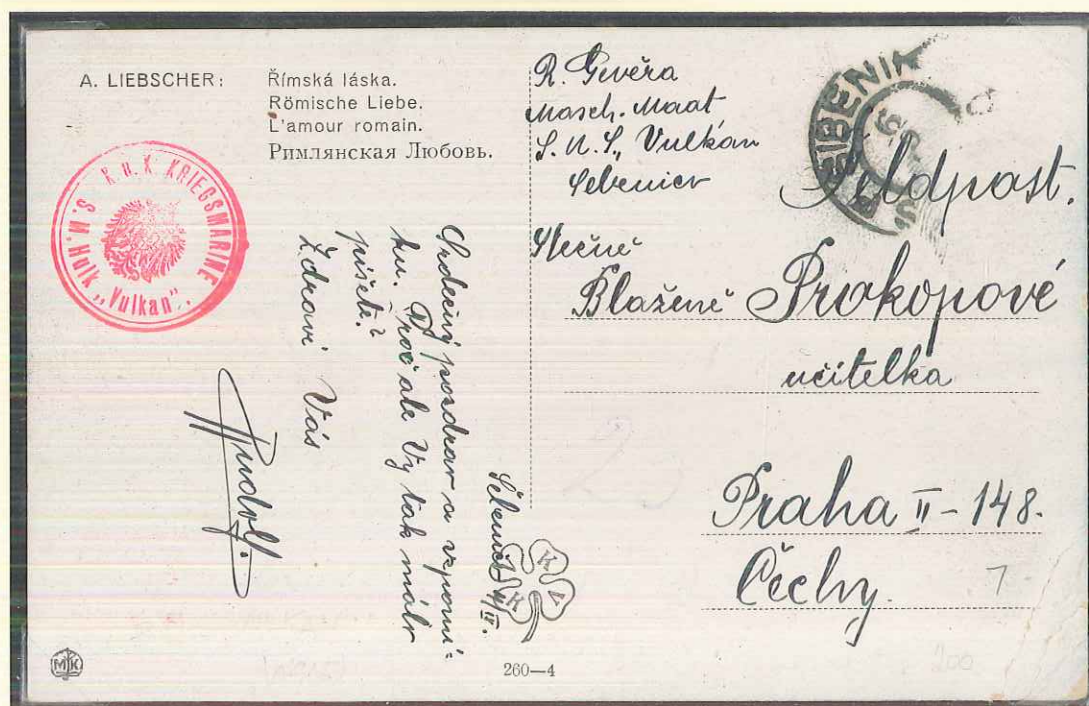 A. LIEBSCHER:
Římská láska.
Römische Liebe.
L'amour romain.
Римлянская Любовь.
K. u. K. KRIEGSMARINE
S. M. Hulk „Vulkan".
R. Gevěra
Masch. Maat
S. M. S. Vulkan
Sebenico
ŠIBENIK
Feldpost.
Slečně
Blaženě Prokopové
učitelka
Praha II - 148.
Čechy.
Šebenico /II.
Srdečný pozdrav a vzpomí-
ku. Proč ale Vy tak málo
píšete?
Zdraví Vás
Rudolf.
K K V
MJK
260—4
7
200